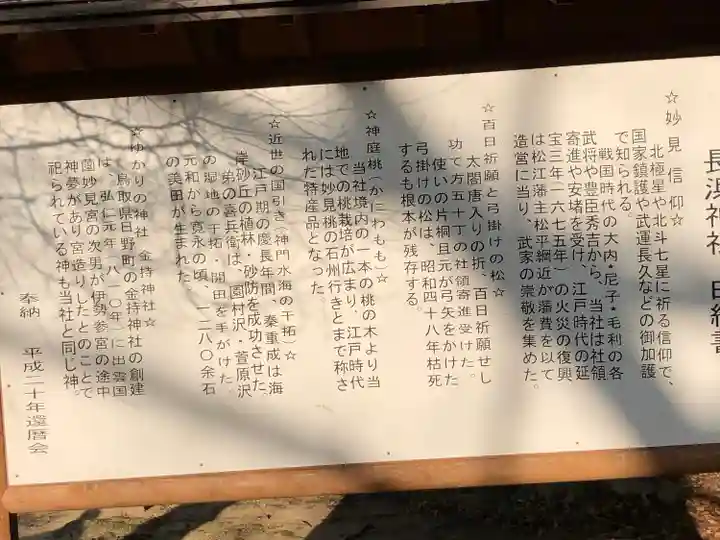 長浜神社 由緒書
☆妙見信仰☆
北極星や北斗七星に祈る信仰で、
国家鎮護や武運長久などの御加護
で知られる。
戦国時代の大内・尼子・毛利の各
武将や豊臣秀吉から、当社は社領
寄進や安堵を受け、江戸時代の延
宝三年(一六七五年)の火災の復興
は松江藩主松平綱近が藩費を以て
造営に当り、武家の崇敬を集めた。
☆百日祈願と弓掛けの松☆
太閤唐入りの折、百日祈願せし
功で方五十丁の社領寄進受けた。
使いの片桐且元が弓矢をかけた
弓掛けの松は、昭和四十八年枯死
するも根本が残存する。
☆神庭桃(かにわもも)☆
当社境内の一本の桃の木より当
地での桃栽培が広まり、江戸時代
には妙見桃の石州行きとまで称さ
れた特産品となった。
☆近世の国引き(神門水海の干拓)☆
江戸期の慶長年間、秦重成は海
岸砂丘の植林・砂防を成功させた。
弟の喜兵衛は、園村沢・菅原沢
の湿地の干拓・開田を手がけた。
元和から寛永の頃、一二八〇余石
の美田が生まれた。
☆ゆかりの神社 金持神社☆
鳥取県日野町の金持神社の創建
は、弘仁元年(八一〇年)に出雲国
薗妙見宮の次男が伊勢参宮の途中
神夢があり宮造りしたとのことで
祀られている神も当社と同じ神。
奉納 平成二十年還暦会